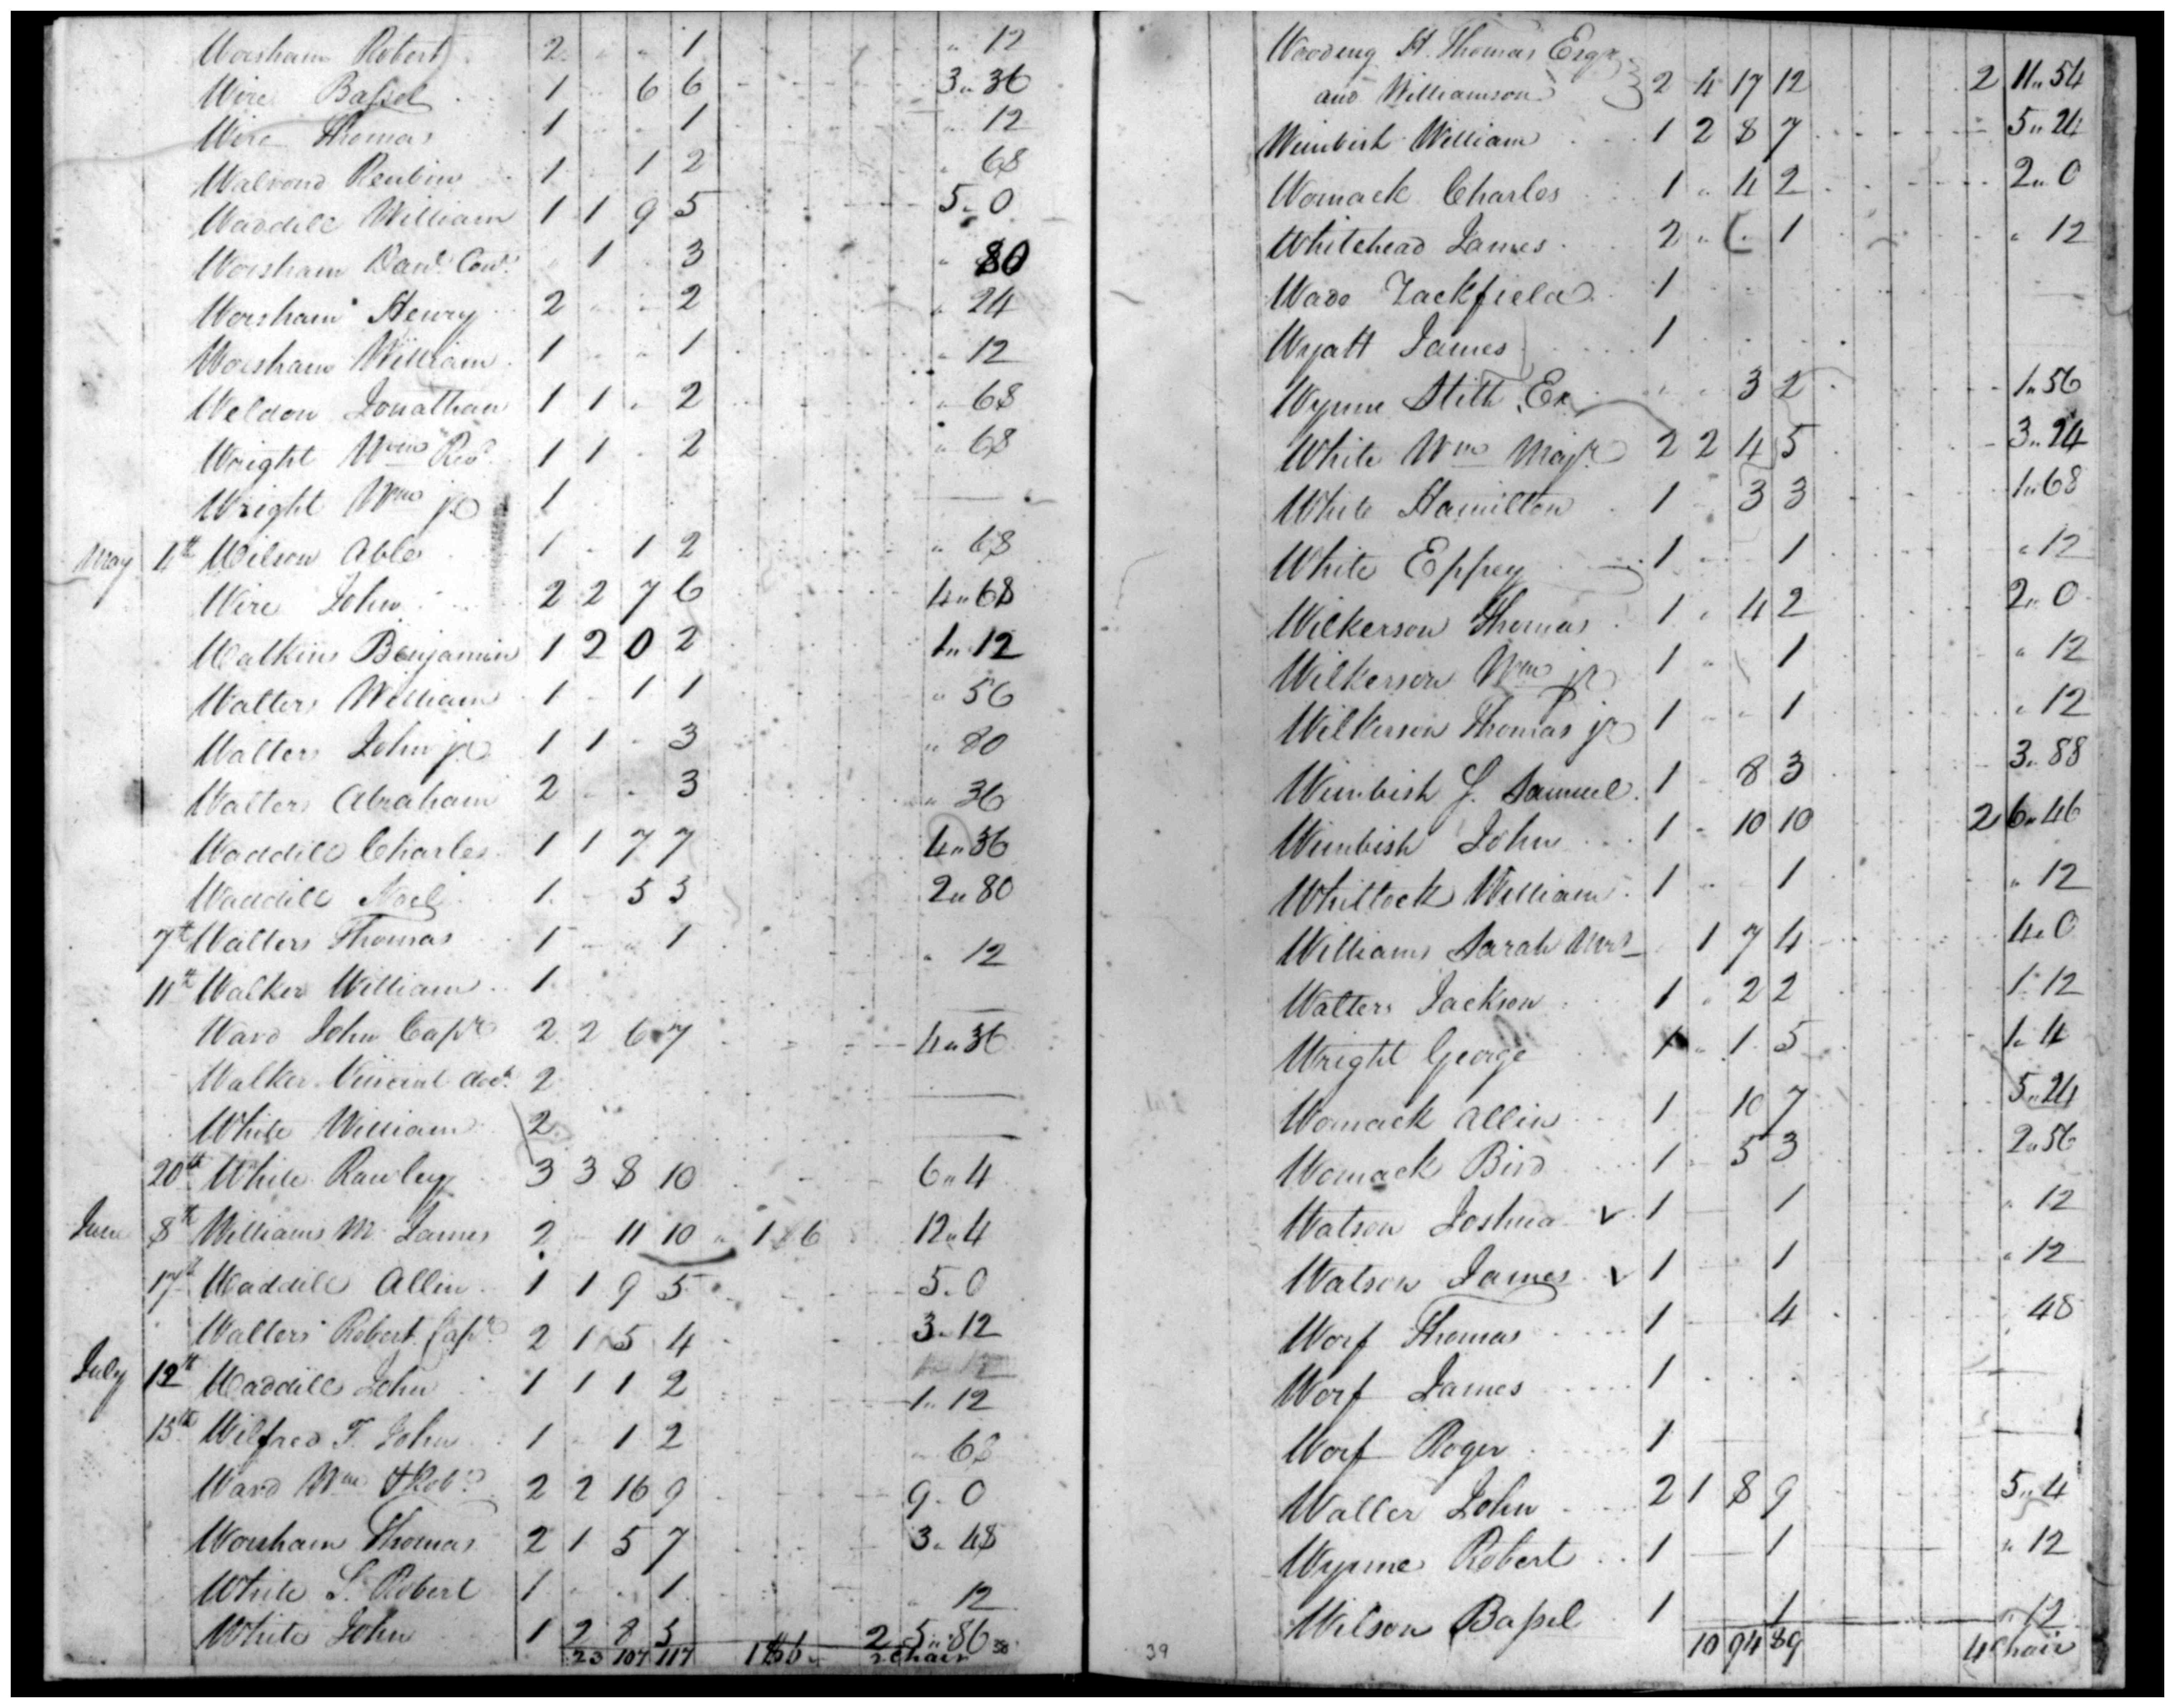 Worsham Robert 2 " " 1 " 12
Wire Bassel 1 6 6 3 " 36
Wire Thomas 1 1 " 12
Walrond Reubin 1 1 2 " 68
Waddill William 1 1 9 5 5 " 0
Worsham Dan'l 1 3 " 80
Worsham Henry 2 2 " 24
Worsham William 1 1 " 12
Weldon Jonathan 1 1 2 " 68
Wright Wm Rev'd 1 1 2 " 68
Wright Wm jr 1
May 4th Wilson Able 1 1 2 " 68
Wire John 2 2 7 6 4 " 68
Watkins Benjamin 1 2 0 2 1 " 12
Walters William 1 1 1 " 56
Walters John jr 1 1 3 " 80
Walters Abraham 2 3 " 36
Waddill Charles 1 1 7 7 4 " 36
Waddill Noel 1 5 3 2 " 80
7th Walters Thomas 1 1 " 12
11th Walker William 1
Ward John Capt 2 2 6 7 4 " 36
Walker Vincent 2
White William 2
20th White Rawley 3 3 8 10 6 " 4
June 8th Williams M. James 2 11 10 12 " 4
17th Waddill Allin 1 1 9 5 5 " 0
Walters Robert Capt 2 1 5 4 3 " 12
July 12th Waddill John 1 1 1 2 1 " 12
15th Wilfred T. John 1 1 2 " 68
Ward Wm & Rob't 2 2 16 9 9 " 0
Worsham Thomas 2 1 5 7 3 " 48
White S. Robert 1 1 " 12
White John 1 2 8 5 2 5 " 86
23 107 117 2 Chair
Wooding H. Thomas Esqr
and Williamson } 2 4 17 12 2 11 " 54
Wimbish William 1 2 8 7 5 " 24
Womack Charles 1 " 4 2 2 " 0
Whitehead James 2 " 1 " 12
Wade Zackfield 1
Wyatt James 1
Wynne Stith Ex. 3 2 1 " 56
White Wm Majr 2 2 4 5 3 " 24
White Hamilton 1 3 3 1 " 68
White Eppey 1 1 " 12
Wilkerson Thomas 1 " 4 2 2 " 0
Wilkerson Wm jr 1 " 1 " 12
Wilkerson Thomas jr 1 1 " 12
Wimbish J. Samuel 1 8 3 3 " 88
Wimbish John 1 10 10 2 6 " 46
Whitlock William 1 1 " 12
Williams Sarah Mrs 1 7 4 4 " 0
Walters Jackson 1 " 2 2 1 " 12
Wright George 1 " 1 5 1 " 4
Womack Allin 1 10 7 5 " 24
Womack Bird 1 5 3 2 " 56
Watson Joshua v 1 1 " 12
Watson James v 1 1 " 12
Worf Thomas 1 4 48
Worf James 1
Worf Roger 1
Waller John 2 1 8 9 5 " 4
Wynne Robert 1 1 " 12
Wilson Bassel 1 1 " 12
39 10 94 89 4 Chair